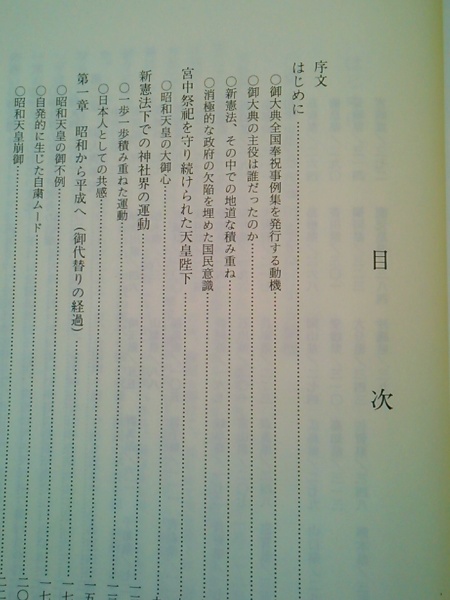 目次
序文
はじめに……………………
○御大典全国奉祝事例集を発行する動機……………………
○御大典の主役は誰だったのか……………………
○新憲法、その中での地道な積み重ね……………………
○消極的な政府の欠陥を埋めた国民意識……………………
宮中祭祀を守り続けられた天皇陛下……………………
○昭和天皇の大御心……………………
新憲法下での神社界の運動……………………
○一歩一歩積み重ねた運動……………………
○日本人としての共感……………………一五
第一章 昭和から平成へ(御代替りの経過)……………………一七
○昭和天皇の御不例……………………一七
○自発的に生じた自粛ムード……………………二〇
○昭和天皇崩御……………………